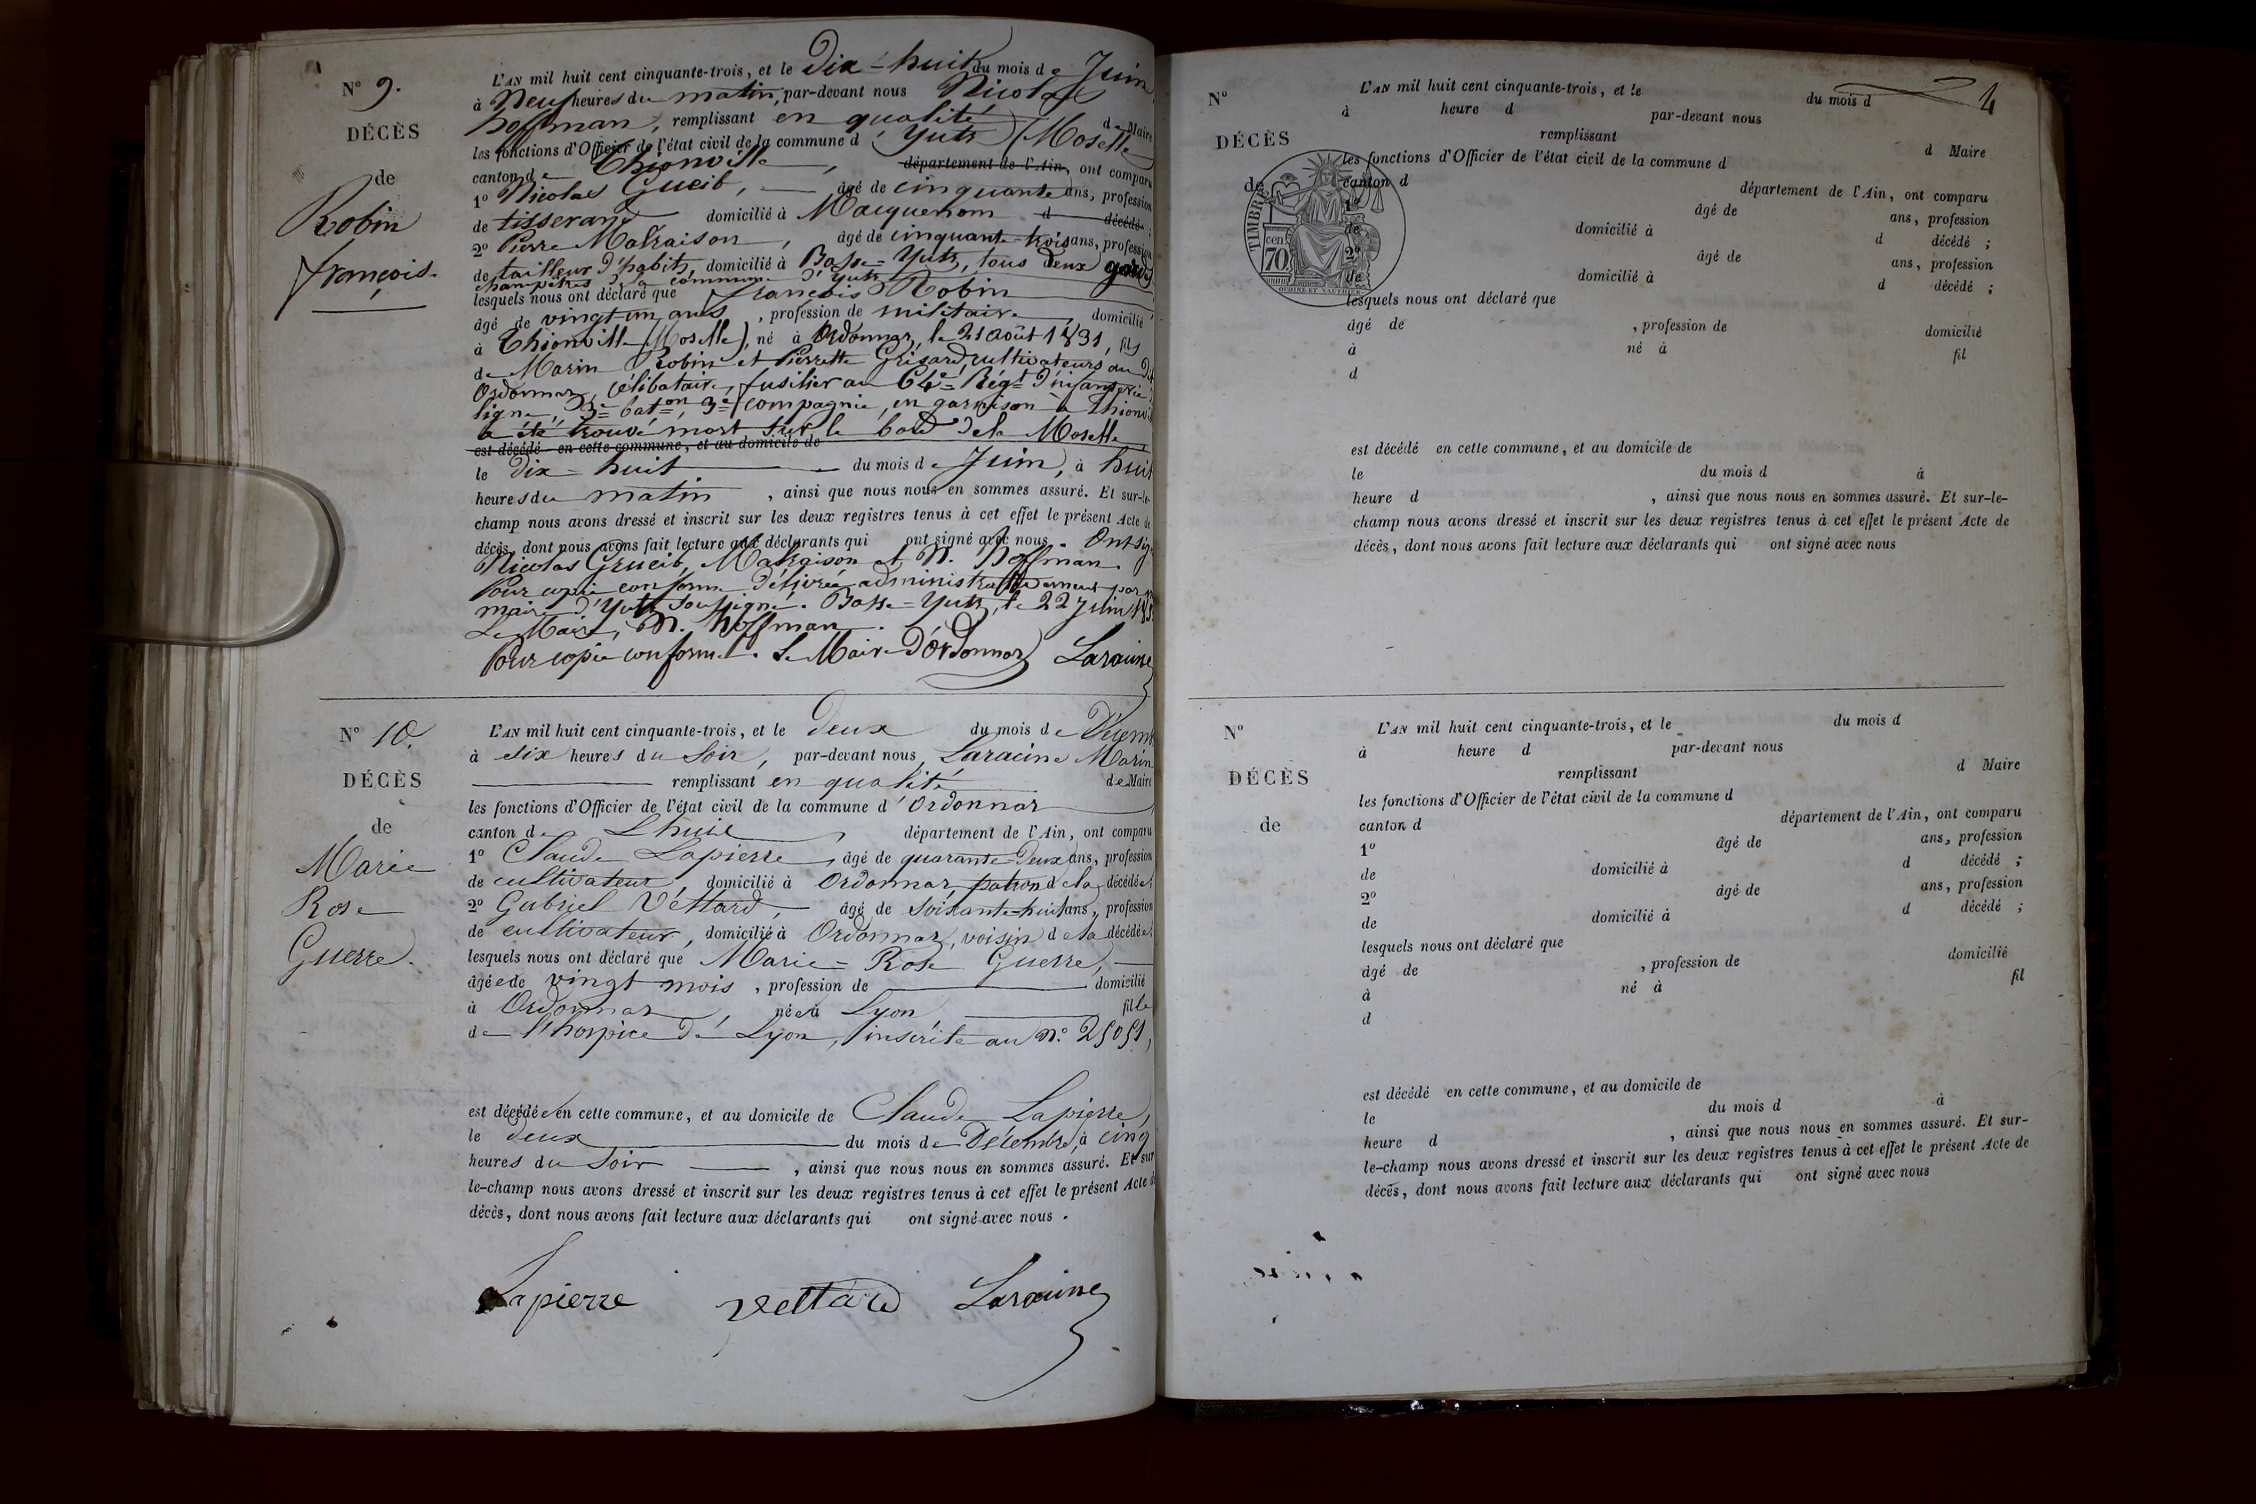 N° 9.
DÉCÈS
de
Robin
françois.
L'AN mil huit cent cinquante-trois, et le Dix-huit du mois de Juin
à Neuf heures du matin, par-devant nous Nicolas
hoffman, remplissant en qualité de Maire
les fonctions d'Officier de l'état civil de la commune d'Yutz (Moselle
canton de Thionville, département de l'Ain, ont comparu
1° Nicolas Grueib, âgé de cinquante ans, profession
de tisserand domicilié à Macquenom d décédé ;
2° Pierre Malraison, âgé de cinquante-trois ans, profession
de tailleur d'habits, domicilié à Basse-Yutz, tous deux gardes
champêtres de la commune d'Yutz
lesquels nous ont déclaré que françois Robin
âgé de vingt un ans, profession de militaire, domicilié
à Thionville (Moselle), né à Ordonnaz, le 21 août 1831, fils
de Marin Robin et Pierrette Grisard cultivateurs au dit
Ordonnaz, célibataire, fusilier au 64e Régt d'infanterie de
ligne, 3e baton, 3e compagnie, en garnison à Thionville
a été trouvé mort sur le bord de la Moselle
est décédé en cette commune, et au domicile de
le dix-huit du mois de Juin, à huit
heures du matin, ainsi que nous nous en sommes assuré. Et sur-le-
champ nous avons dressé et inscrit sur les deux registres tenus à cet effet le présent Acte de
décès, dont nous avons fait lecture aux déclarants qui ont signé avec nous. Ont signé
Nicolas Grueib, Malraison et N. Hoffman.
Pour copie conforme délivrée administrativement par
maire d'Yutz soussigné. Basse-Yutz, le 22 Juin 185
Le Maire, N. Hoffman.
Pour copie conforme. Le Maire d'Ordonnaz Laracine
N° 10.
DÉCÈS
de
Marie
Rose
Guerre.
L'AN mil huit cent cinquante-trois, et le deux du mois de Décembre
à six heures du soir, par-devant nous Laracine Marin
remplissant en qualité de Maire
les fonctions d'Officier de l'état civil de la commune d'Ordonnaz
canton de Lhuis, département de l'Ain, ont comparu
1° Claude Lapierre, âgé de quarante-deux ans, profession
de cultivateur, domicilié à Ordonnaz, patron de la décédée ;
2° Gabriel Vettard, âgé de soixante-huit ans, profession
de cultivateur, domicilié à Ordonnaz, voisin de la décédée ;
lesquels nous ont déclaré que Marie-Rose Guerre,
âgée de vingt mois, profession de domicilié
à Ordonnaz, née à Lyon fille
de l'hospice de Lyon, inscrite au n° 25051,
est décédée en cette commune, et au domicile de Claude Lapierre,
le deux du mois de Décembre, à cinq
heures du soir, ainsi que nous nous en sommes assuré. Et sur
le-champ nous avons dressé et inscrit sur les deux registres tenus à cet effet le présent Acte de
décès, dont nous avons fait lecture aux déclarants qui ont signé avec nous.
Lapierre Vettard Laracine
4
N°
DÉCÈS
de
TIMBRE
cen.
70
L'AN mil huit cent cinquante-trois, et le du mois d
à heure d par-devant nous
remplissant d Maire
les fonctions d'Officier de l'état civil de la commune d
canton d département de l'Ain, ont comparu
1° âgé de ans, profession
de domicilié à d décédé ;
2° âgé de ans, profession
de domicilié à d décédé ;
lesquels nous ont déclaré que
âgé de , profession de domicilié
à né à fil
d
est décédé en cette commune, et au domicile de
le du mois d à
heure d , ainsi que nous nous en sommes assuré. Et sur-le-
champ nous avons dressé et inscrit sur les deux registres tenus à cet effet le présent Acte de
décès, dont nous avons fait lecture aux déclarants qui ont signé avec nous
N°
DÉCÈS
de
L'AN mil huit cent cinquante-trois, et le du mois d
à heure d par-devant nous
remplissant d Maire
les fonctions d'Officier de l'état civil de la commune d
canton d département de l'Ain, ont comparu
1° âgé de ans, profession
de domicilié à d décédé ;
2° âgé de ans, profession
de domicilié à d décédé ;
lesquels nous ont déclaré que
âgé de , profession de domicilié
à né à fil
d
est décédé en cette commune, et au domicile de
le du mois d à
heure d , ainsi que nous nous en sommes assuré. Et sur-
le-champ nous avons dressé et inscrit sur les deux registres tenus à cet effet le présent Acte de
décès, dont nous avons fait lecture aux déclarants qui ont signé avec nous